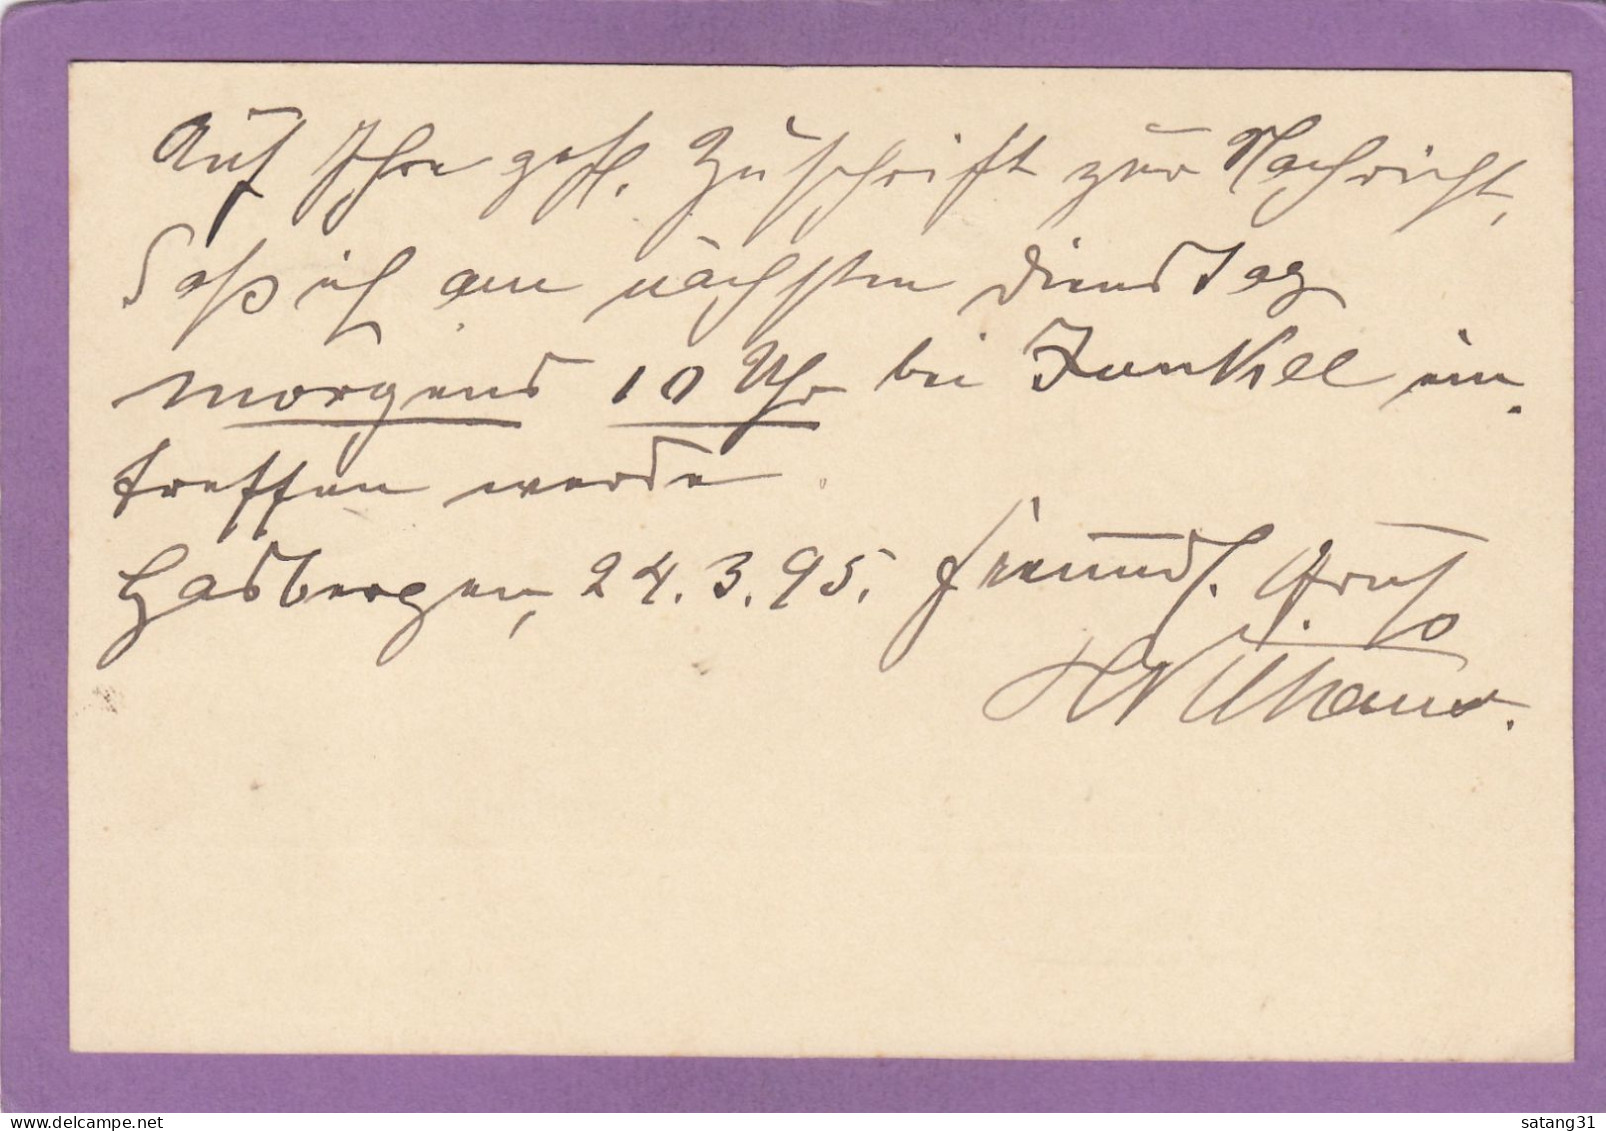 Auf Ihre gefl. Zuschrift zur Nachricht,
daß ich am nächsten Dienstag
morgens 10 Uhr bei Funkel ein
treffen werde.
Hasbergen, 24.3.95. Freundl. Gruß
satang31